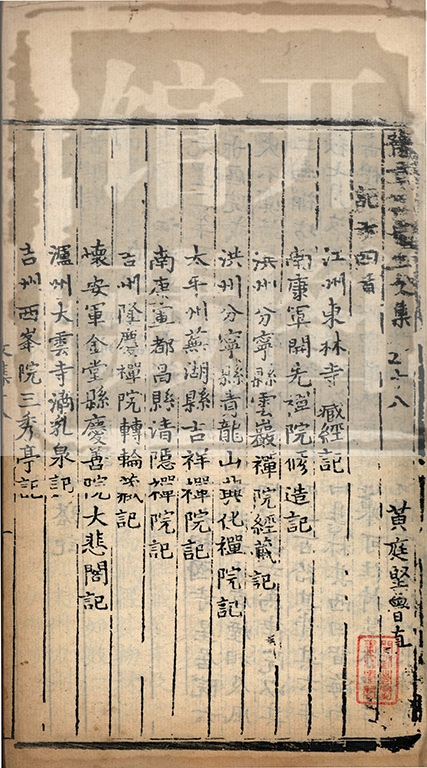 文集 十八
黃庭堅魯直
江州東林寺藏經記
南康軍開先禪院修造記
洪州分寧縣雲巖禪院經藏記
洪州分寧縣青龍山興化禪院記
太平州蕪湖縣吉祥禪院記
南康軍都昌縣清隱禪院記
吉州隆慶禪院轉輪藏記
懷安軍金堂縣慶善院大悲閣記
瀘州大雲寺滴乳泉記
吉州西峯院三秀亭記